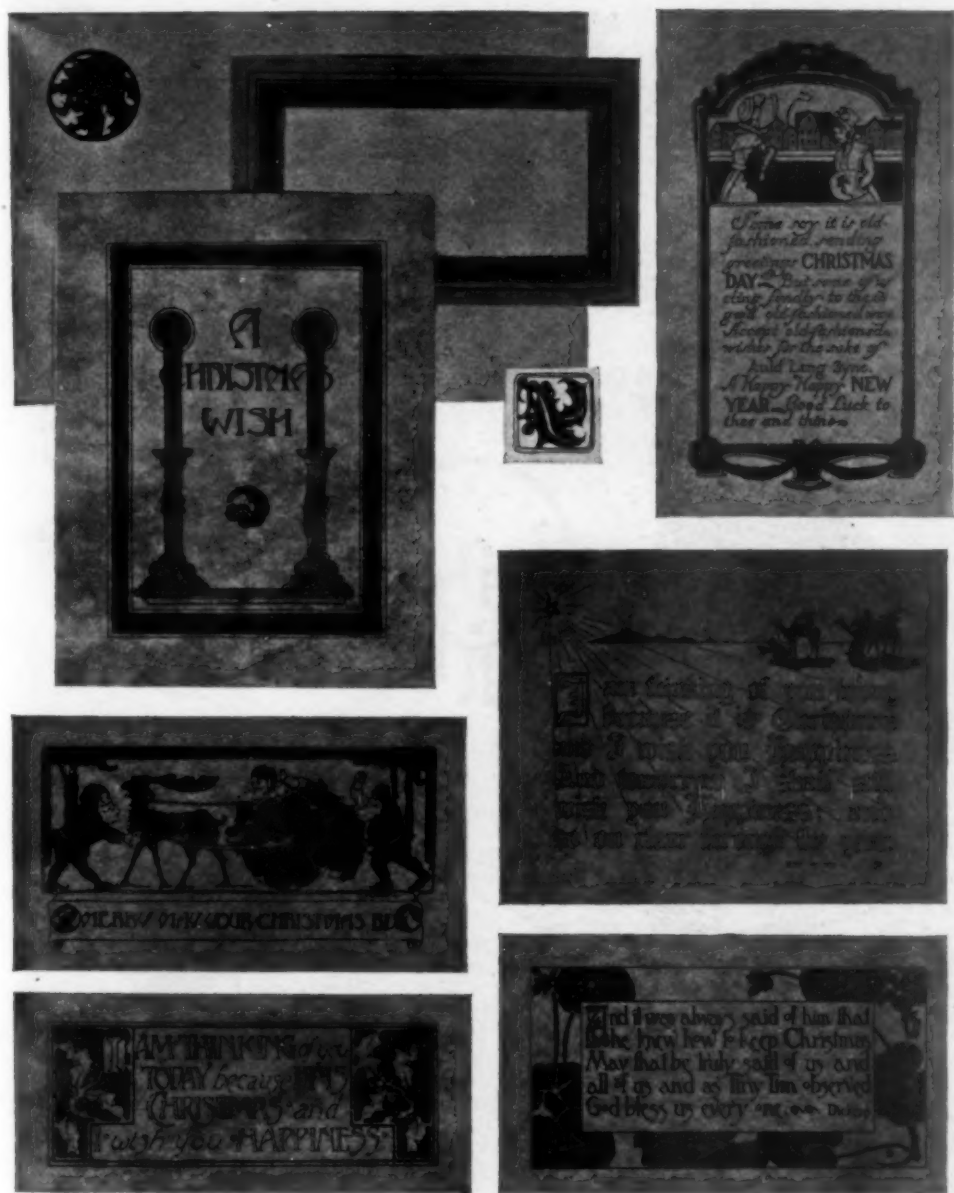 A
CHRISTMAS
WISH
Some say it is old-
fashioned, sending
greetings CHRISTMAS
DAY — But some of us
cling fondly to the
good old fashioned way
Accept old-fashioned
wishes for the sake of
Auld Lang Syne.
A Happy Happy NEW
YEAR — Good Luck to
thee and thine —
I am thinking of you today
because it is Christmas
and I wish you Happiness
And tomorrow,
wish you Happiness and
so on
MERRY MAY YOUR CHRISTMAS BE
I AM THINKING of you
TODAY because IT IS
CHRISTMAS and
I wish you HAPPINESS
And it was always said of him that
he knew how to keep Christmas
May that be truly said of us and
all of us and as Tiny Tim observed
God bless us every one. Dickens